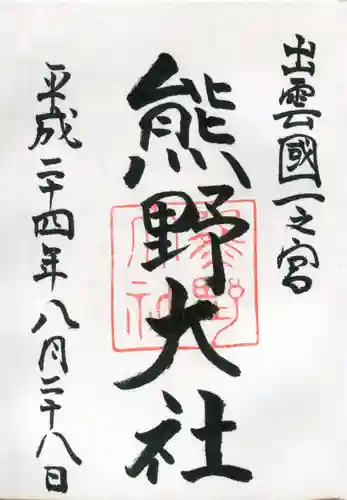 出雲國一之宮
熊野大社
熊野大社
平成二十四年八月二十八日